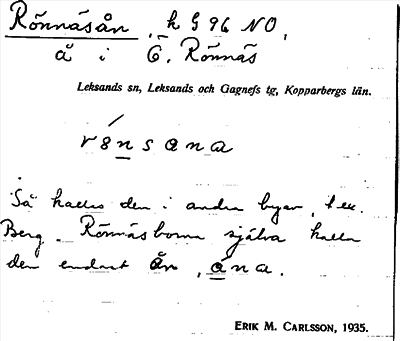 Rönnäsån, k G 96 NO,
å i Ö. Rönnäs
Leksands sn, Leksands och Gagnefs tg, Kopparbergs län.
Så kallas den i andra byar, t ex.
Berg. Rönnäsborna själva kalla
den endast ån, ána.
ERIK M. CARLSSON, 1935.